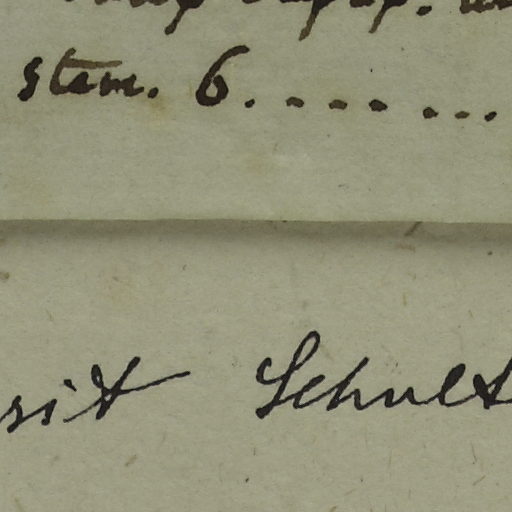 stem. 6. . . . . . . .
sit Schult